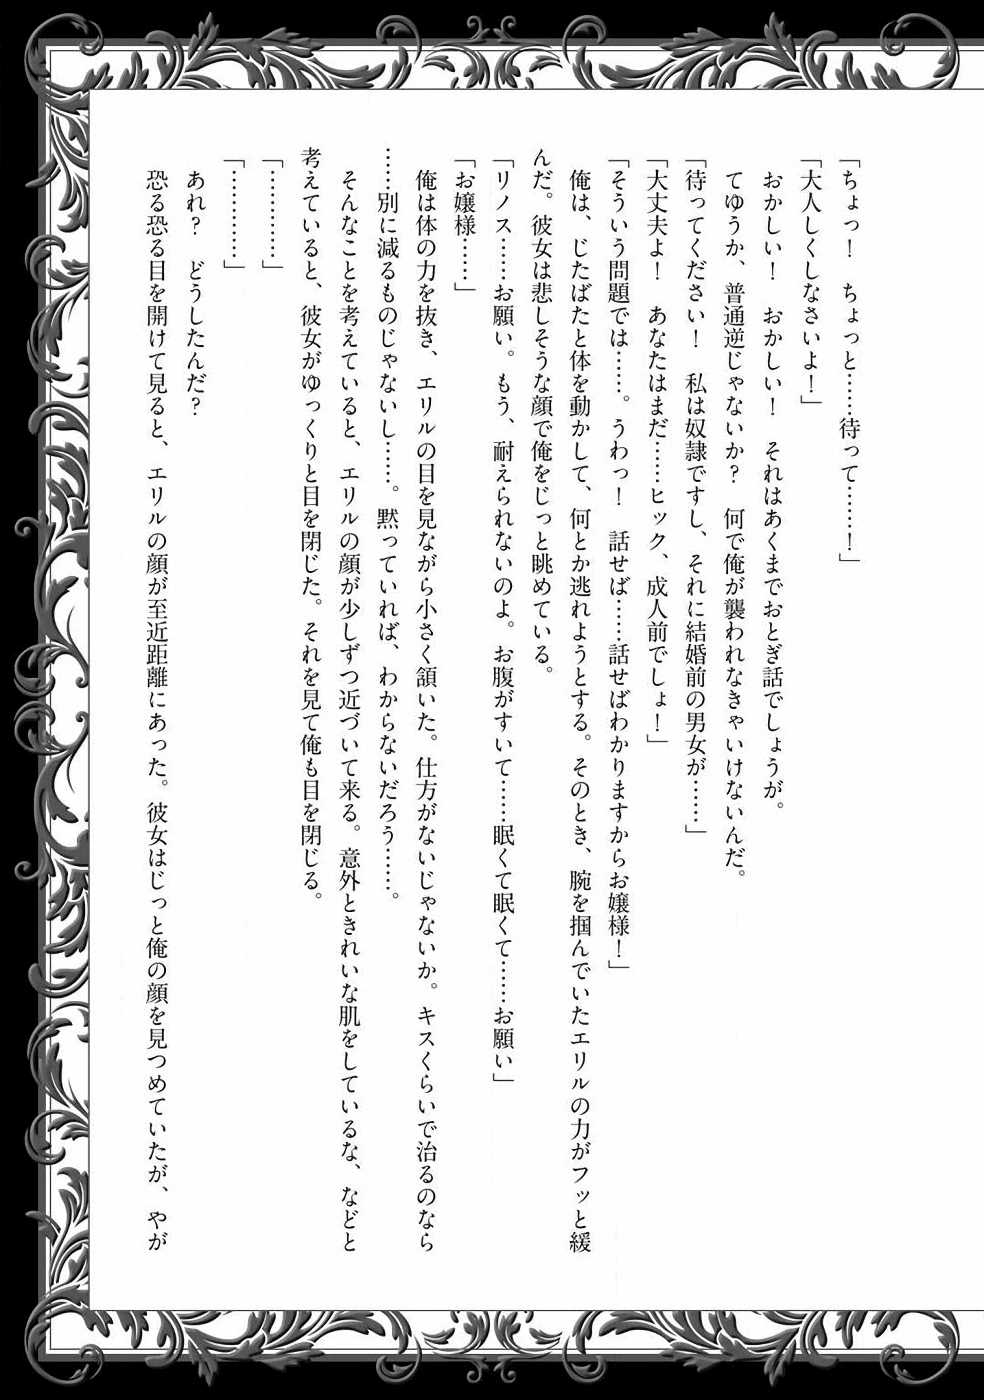 「ちょっ！　ちょっと……待って……！」
「大人しくしなさいよ！」
　おかしい！　おかしい！　それはあくまでおとぎ話でしょうが。
　てゆうか、普通逆じゃないか？　何で俺が襲われなきゃいけないんだ。
「待ってください！　私は奴隷ですし、それに結婚前の男女が……」
「大丈夫よ！　あなたはまだ……ヒック、成人前でしょ！」
「そういう問題では……。うわっ！　話せば……話せばわかりますからお嬢様！」
　俺は、じたばたと体を動かして、何とか逃れようとする。そのとき、腕を掴んでいたエリルの力がフッと緩
んだ。彼女は悲しそうな顔で俺をじっと眺めている。
「リノス……お願い。もう、耐えられないのよ。お腹がすいて……眠くて眠くて……お願い」
「お嬢様……」
　俺は体の力を抜き、エリルの目を見ながら小さく頷いた。仕方がないじゃないか。キスくらいで治るのなら
……別に減るものじゃないし……。黙っていれば、わからないだろう……。
　そんなことを考えていると、エリルの顔が少しずつ近づいて来る。意外ときれいな肌をしているな、などと
考えていると、彼女がゆっくりと目を閉じた。それを見て俺も目を閉じる。
「…………」
「…………」
　あれ？　どうしたんだ？
　恐る恐る目を開けて見ると、エリルの顔が至近距離にあった。彼女はじっと俺の顔を見つめていたが、やが